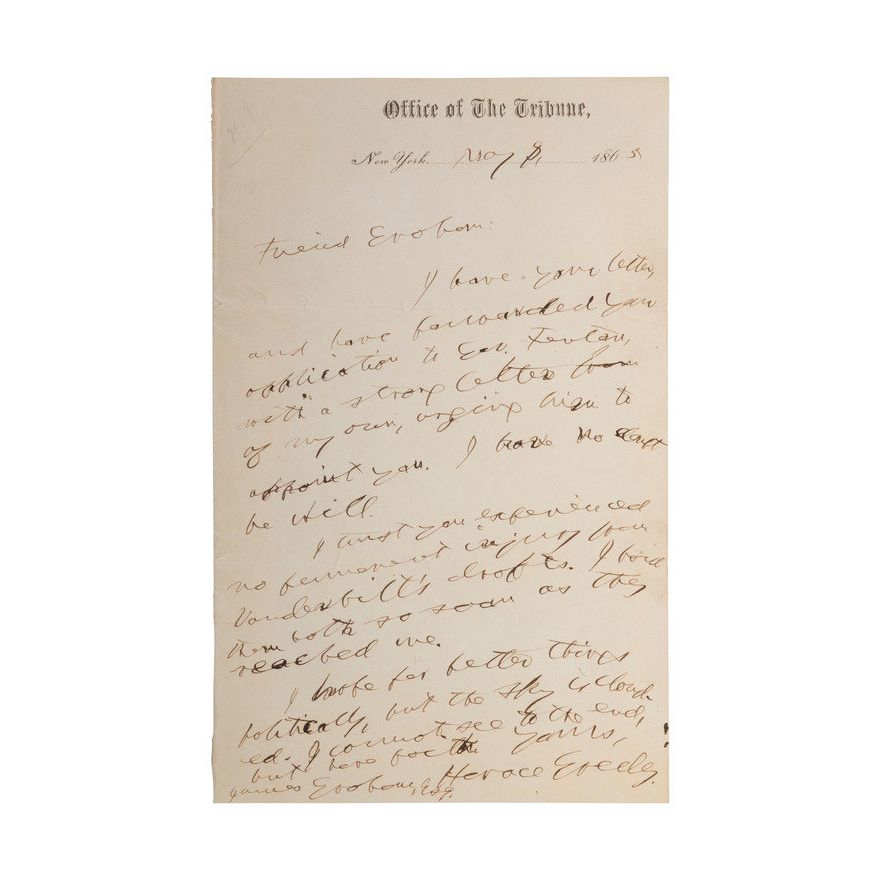 Office of The Tribune,
New York, May 8, 1865
Friend Graham:
I have your letter,
and have forwarded your
application to Gov. Fenton,
with a strong letter from
of my own, urging him to
appoint you. I have no doubt
he will.
I trust you experienced
no permanent injury from
Vanderbilt's drafts. I paid
them both so soon as they
reached me.
I hope for better things
politically, but the sky is cloud-
ed. I cannot see to the end,
but have faith. Yours,
Horace Greeley.
James Graham, Esq.